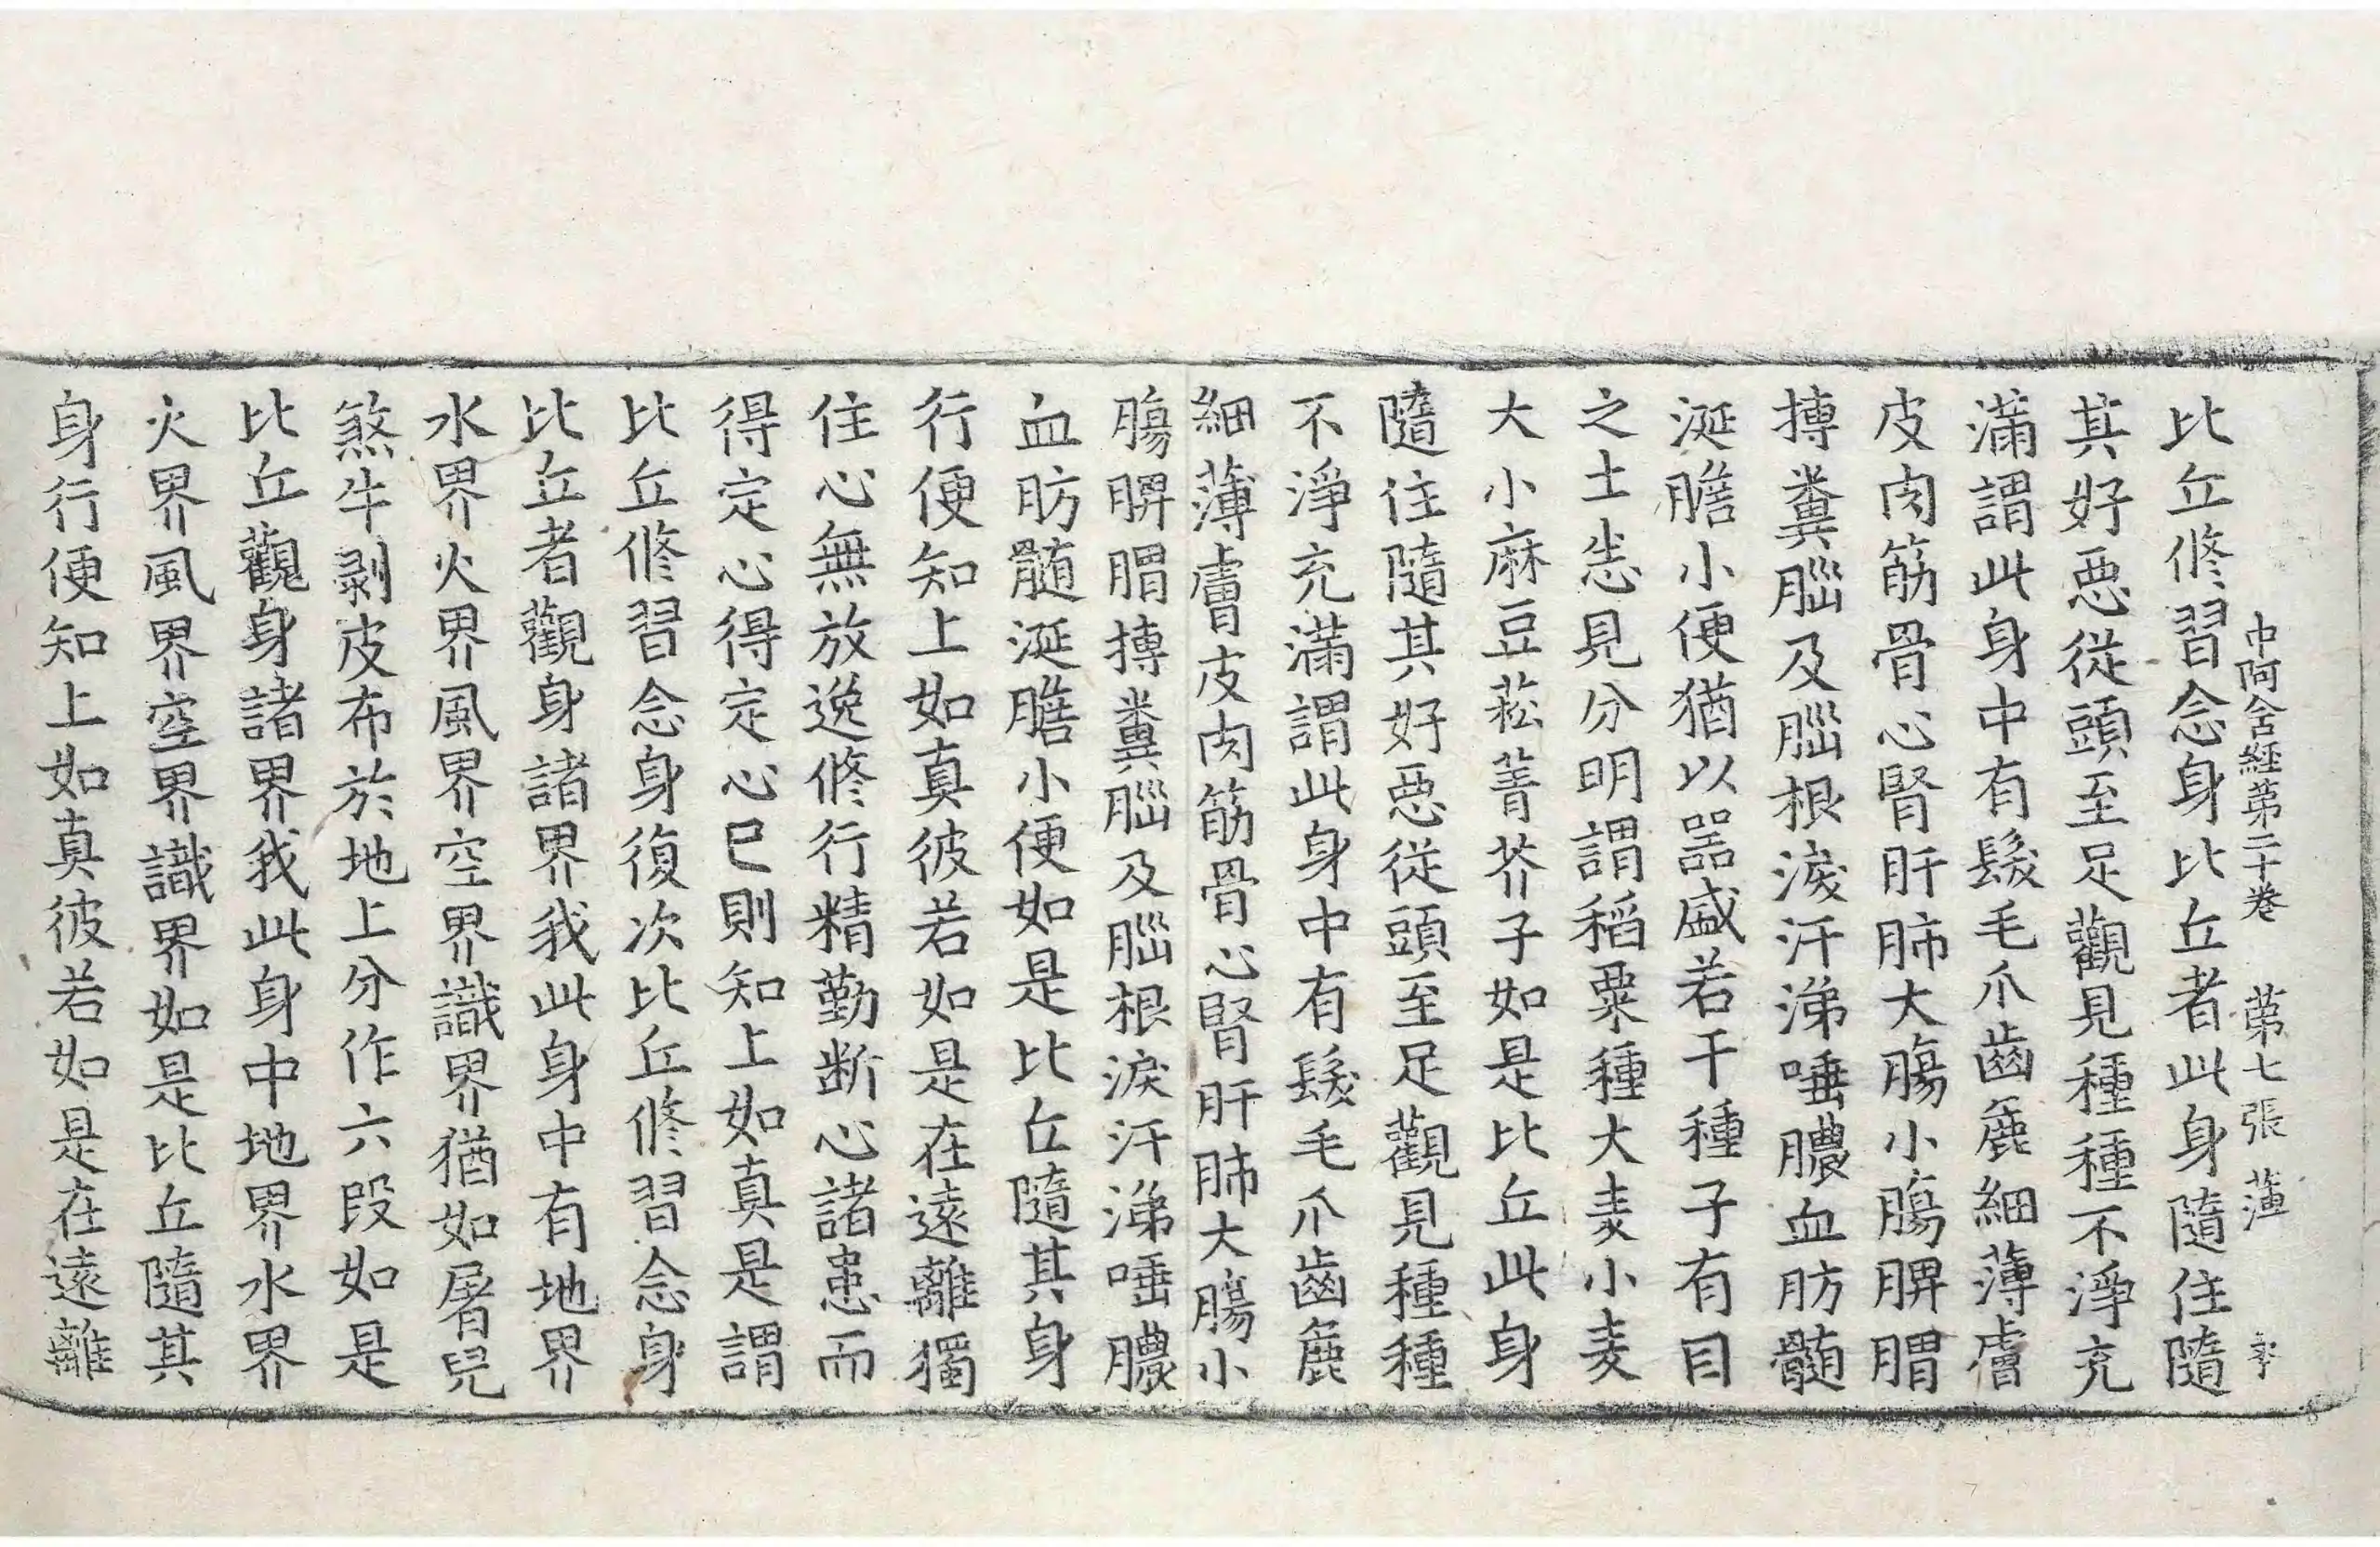 中阿含經第二十卷 第七張 薄
比丘修習念身比丘者此身隨住隨
其好惡從頭至足觀見種種不淨充
滿謂此身中有髮毛爪齒麁細薄膚
皮肉筋骨心腎肝肺大膓小膓脾胃
摶糞腦及腦根淚汗涕唾膿血肪髓
涎膽小便猶以器盛若干種子有目
之士悉見分明謂稻粟種大麦小麦
大小麻豆菘菁芥子如是比丘此身
隨住隨其好惡從頭至足觀見種種
不淨充滿謂此身中有髮毛爪齒麁
細薄膚皮肉筋骨心腎肝肺大膓小
膓脾胃摶糞腦及腦根淚汗涕唾膿
血肪髓涎膽小便如是比丘隨其身
行便知上如真彼若如是在遠離獨
住心無放逸修行精勤断心諸患而
得定心得定心已則知上如真是謂
比丘修習念身復次比丘修習念身
比丘者觀身諸界我此身中有地界
水界火界風界空界識界猶如屠兒
煞牛剥皮布於地上分作六段如是
比丘觀身諸界我此身中地界水界
火界風界空界識界如是比丘隨其
身行便知上如真彼若如是在遠離